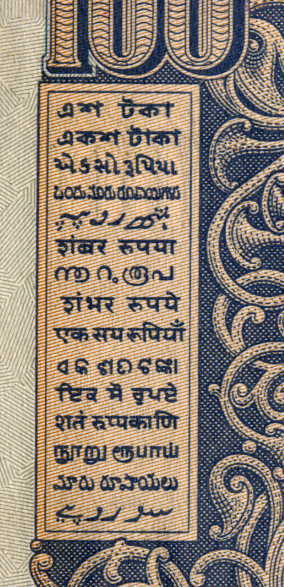 100
এশ টকা
একশ টাকা
એકસો રૂપિયા
ಒಂದು ನೂರು ರೂಪಾಯಿಗಳು
शंबर रुपया
നൂറു രൂപ
शंभर रुपये
एक सय रुपियाँ
ଏକ ଶତ ଟଙ୍କା
ਇਕ ਸੌ ਰੁਪਏ
शतं रूप्यकाणि
நூறு ரூபாய்
నూరు రూపాయలు
سو روپیے